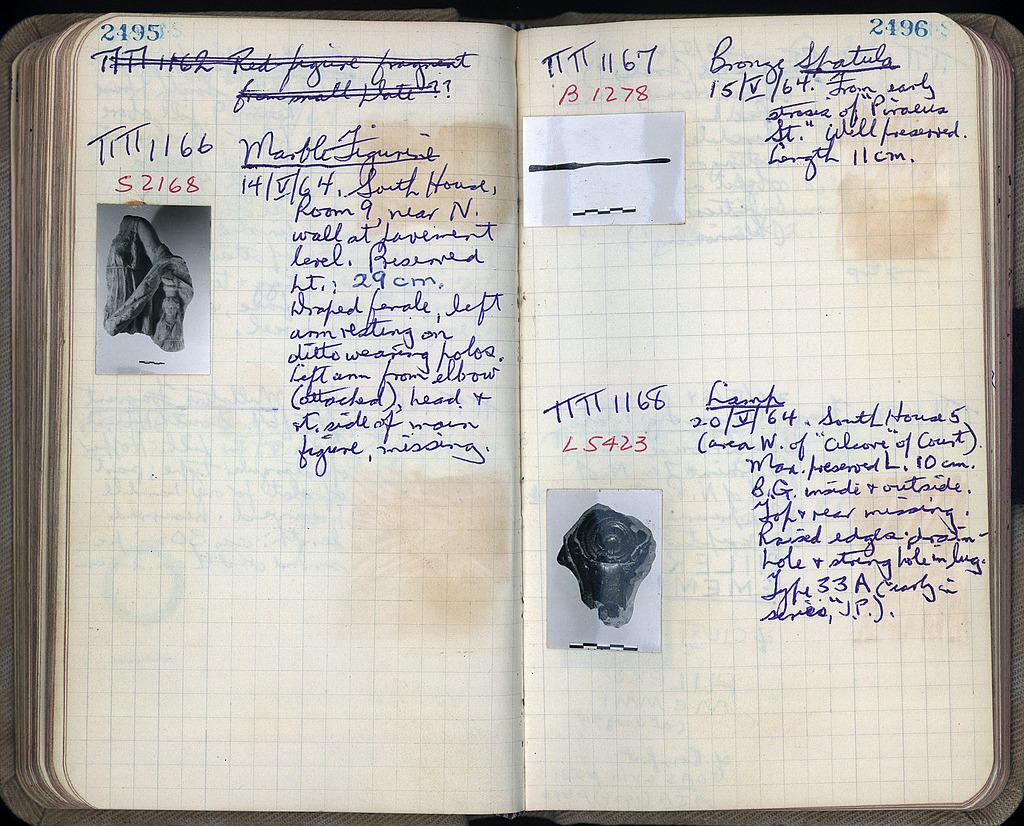 2495
ΠΠ 1162 Red figure fragment
from small plate??
ΠΠ 1166 Marble Figurine
S 2168
14/V/64. South House,
Room 9, near N.
wall at pavement
level. Preserved
ht.: 29 cm.
Draped female, left
arm resting on
ditto wearing polos.
Left arm from elbow
(attached), head &
rt. side of main
figure, missing.
2496
ΠΠ 1167 Bronze Spatula
B 1278
15/V/64. From early
strosis of "Piraeus
St." Well preserved.
Length 11 cm.
ΠΠ 1168 Lamp
L 5423
20/V/64. South House 5
(area W. of "Alcove" of Court).
Max. preserved L. 10 cm.
B.G. inside & outside.
Top & rear missing.
Raised edges: drain-
hole & string hole in lug.
Type 33 A ("early in
series," J.P.).